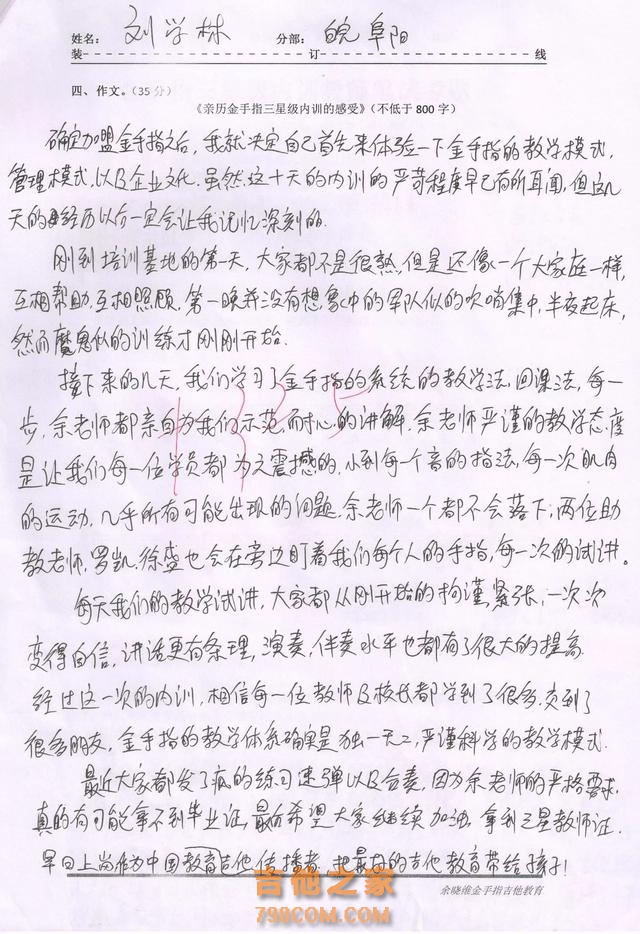 姓名: 刘学林 分部: 皖阜阳
装 订 线
四、作文。(35分)
《亲历金手指三星级内训的感受》(不低于800字)
确定加盟金手指之后,我就决定自己首先来体验一下金手指的教学模式,
管理模式,以及企业文化.虽然这十天的内训的严苛程度早已有所耳闻,但这几
天的经历以后一定会让我记忆深刻的.
刚到培训基地的第一天,大家都不是很熟,但是还像一个大家庭一样,
互相帮助,互相照顾,第一晚并没有想象中的军队似的吹哨集中,半夜起床,
然而魔鬼似的训练才刚刚开始.
接下来的几天,我们学习了金手指的系统的教学法,回课法,每一
步,余老师都亲自为我们示范,而耐心的讲解.余老师严谨的教学态度
是让我们每一位学员都为之震撼的,小到每一个音的指法,每一次肌肉
的运动,几乎所有可能出现的问题,余老师一个都不会落下;两位助
教老师,罗凯.徐盛也会在旁边盯着我们每个人的手指,每一次的试讲。
每天我们的教学试讲,大家都从刚开始的拘谨,紧张,一次次
变得自信,讲话更有条理,演奏,伴奏水平也都有了很大的提高.
经过这一次的内训,相信每一位教师及校长都学到了很多.交到了
很多朋友,金手指的教学体系确实是独一无二,严谨科学的教学模式.
最近大家都发了疯的练习速弹以及合奏,因为余老师的严格要求,
真的有可能拿不到毕业证,最后希望大家继续加油,拿到三星教师证.
早日上岗作为中国教育吉他传播者,把最好的吉他教育带给孩子!
吉他之家
798COM.COM
余晓维金手指吉他教育